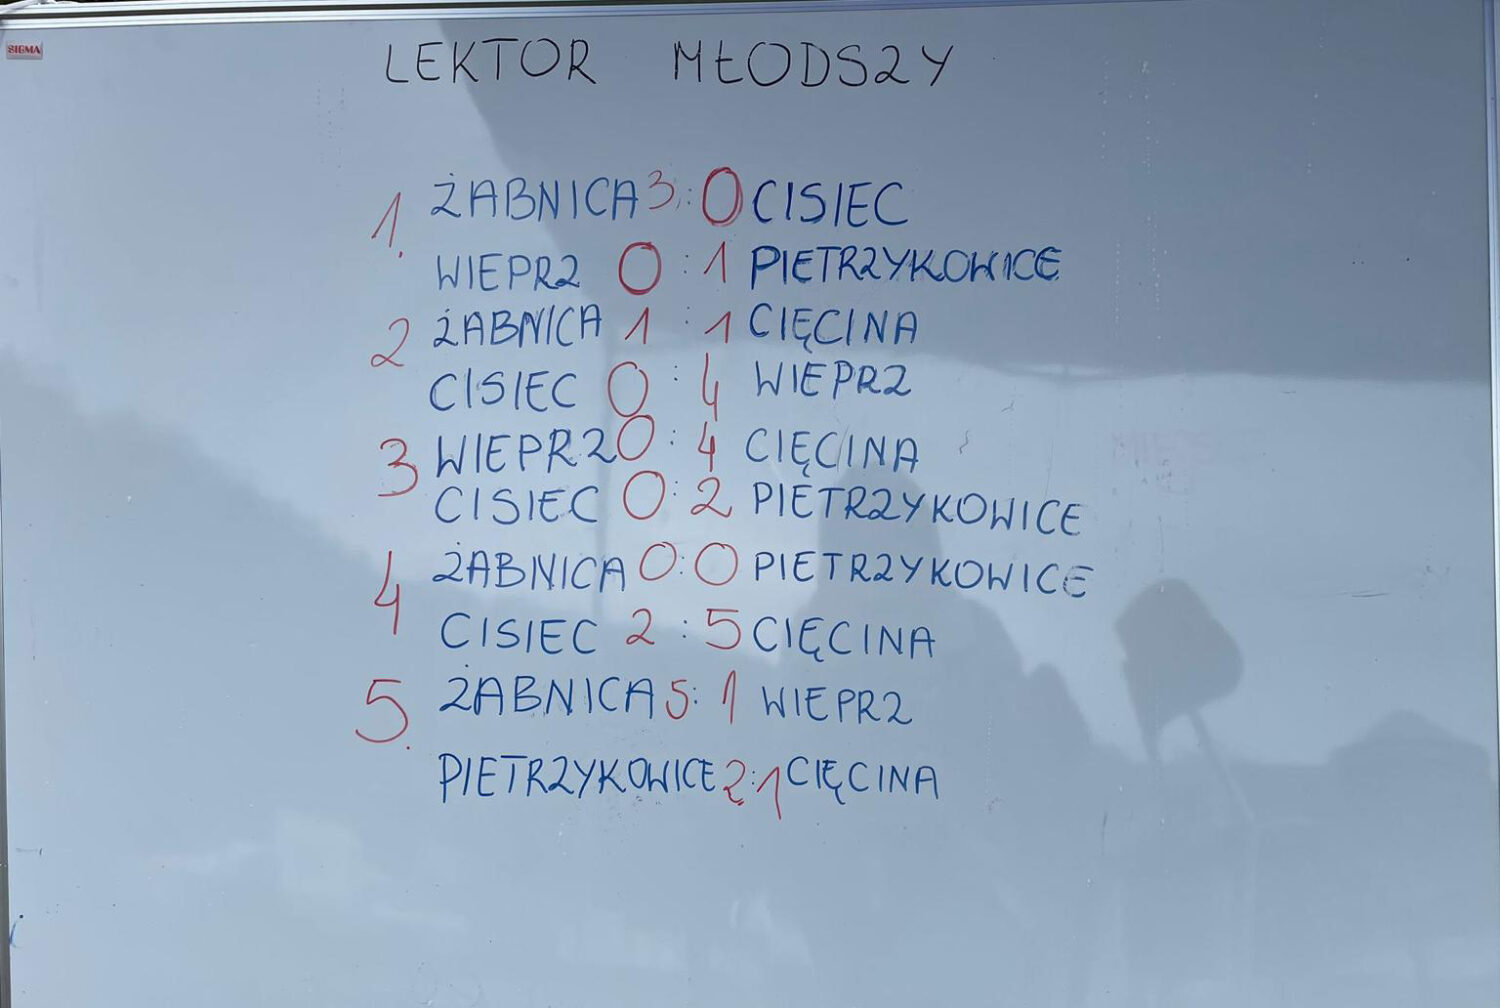 SIGMA
LEKTOR MŁODSZY
1. ŻABNICA 3:0 CISIEC
WIEPRZ 0:1 PIETRZYKOWICE
2 ŻABNICA 1:1 CIĘCINA
CISIEC 0:4 WIEPRZ
3 WIEPRZ 0:4 CIĘCINA
CISIEC 0:2 PIETRZYKOWICE
4 ŻABNICA 0:0 PIETRZYKOWICE
CISIEC 2:5 CIĘCINA
5. ŻABNICA 5:1 WIEPRZ
PIETRZYKOWICE 2:1 CIĘCINA